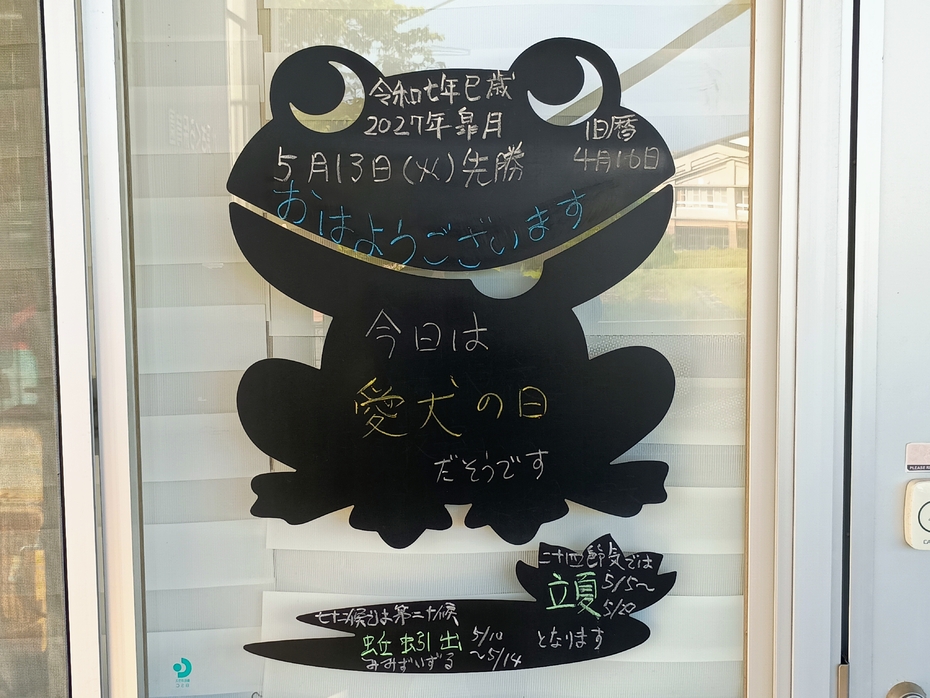 令和七年巳歳
2027年皐月
旧暦
5月13日(火)先勝
4月16日
おはようございます
今日は
愛犬の日
だそうです
二十四節気では
立夏 5/5〜
5/20
となります
七十二候では第二十候
蚯蚓出 5/10
みみずいずる 〜5/14